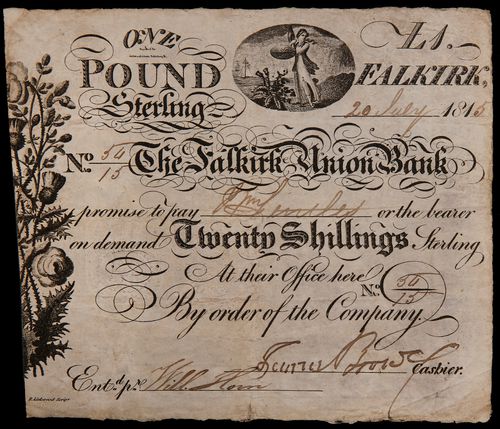 ONE
POUND
Sterling
£1.
FALKIRK,
20 July 1815
No. 54/15 The Falkirk Union Bank
promise to pay or the bearer
on demand Twenty Shillings Sterling
At their Office here
No. 54/15
By order of the Company.
Cashier.
Entd. pr. Will
Script